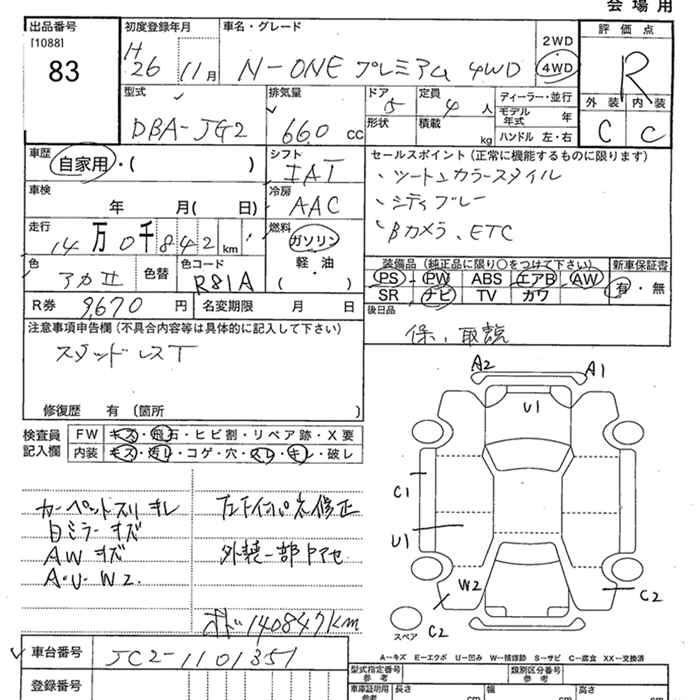 会場用
出品番号 初度登録年月 車名・グレード 評価点
[1088] 83
H26 11月 N-ONE プレミアム 4WD 2WD 4WD R
型式 排気量 ドア 定員 ディーラー・並行 外装 内装
DBA-JG2 660 cc 5 4 人 モデル年式 年 C C
形状 積載 kg ハンドル 左・右
車歴 自家用・( ) シフト セールスポイント(正常に機能するものに限ります)
IAT ・ツートンカラースタイル
車検 年 月( 日) 冷房 AAC ・シティブレー
・Bカメラ、ETC
走行 14万0千842km 燃料 ガソリン
軽・油 装備品(純正品に限り〇をつけて下さい) 新車保証書
色 アカII 色替 色コード R81A PS PW ABS エアB AW 有・無
SR ナビ TV カワ
R券 9,670円 名変期限 月 日 後日品
注意事項申告欄(不具合内容等は具体的に記入して下さい) 保、取説
スタッドレスT
修復歴 有(箇所 )
A2 A1
U1
検査員記入欄 FW キズ・飛石・ヒビ割・リペア跡・X要
内装 キズ・汚レ・コゲ・穴・スレ・キレ・破レ
カーペットスリキレ
ミラーキズ
AWキズ
A・U・W2.
修正
外装一部
140847km
C1
U1
W2
C2
C2
スペア
A-キズ E-エクボ U-凹み W-補修跡 S-サビ C-腐食 XX-交換済
車台番号 JG2-1101351
登録番号
型式指定番号 参考 類別区分番号 参考
車庫証明用 参考 長さ cm 幅 cm 高さ cm